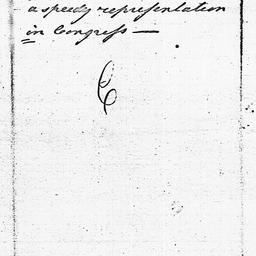 a speedy representation
in Congress —